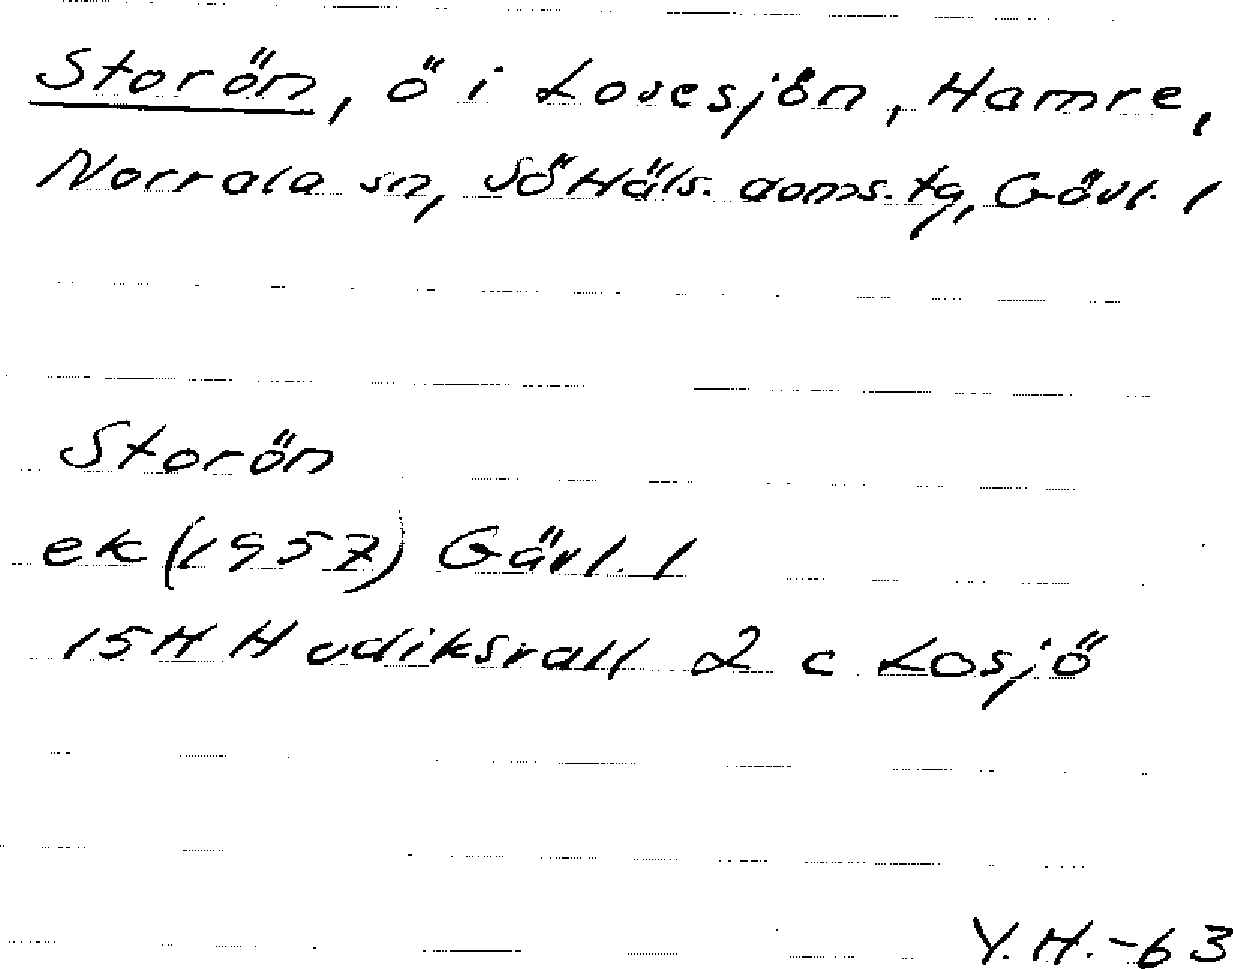 Storön, ö i Losesjön, Hamre,
Norrala sn, SöHäls. doms.tg, Gävl. l
Storön
ek (1957) Gävl. l
15H Hudiksvall 2 c Losjö
Y.H.-63